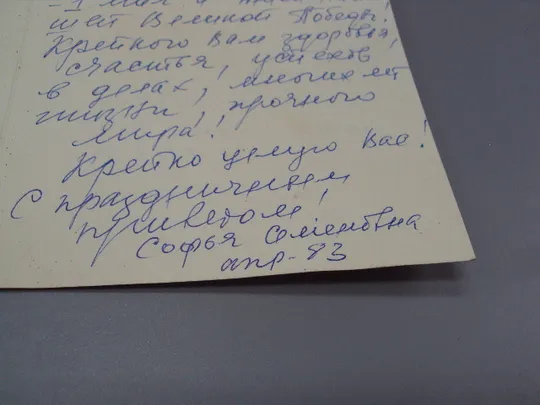 - 1 Мая и
шей Великой Победы.
Крепкого Вам здоровья,
счастья, успехов
в делах, многих лет
жизни, прочного
мира.
Крепко целую Вас!
С праздничным
приветом!
Софья Семеновна
апр-83